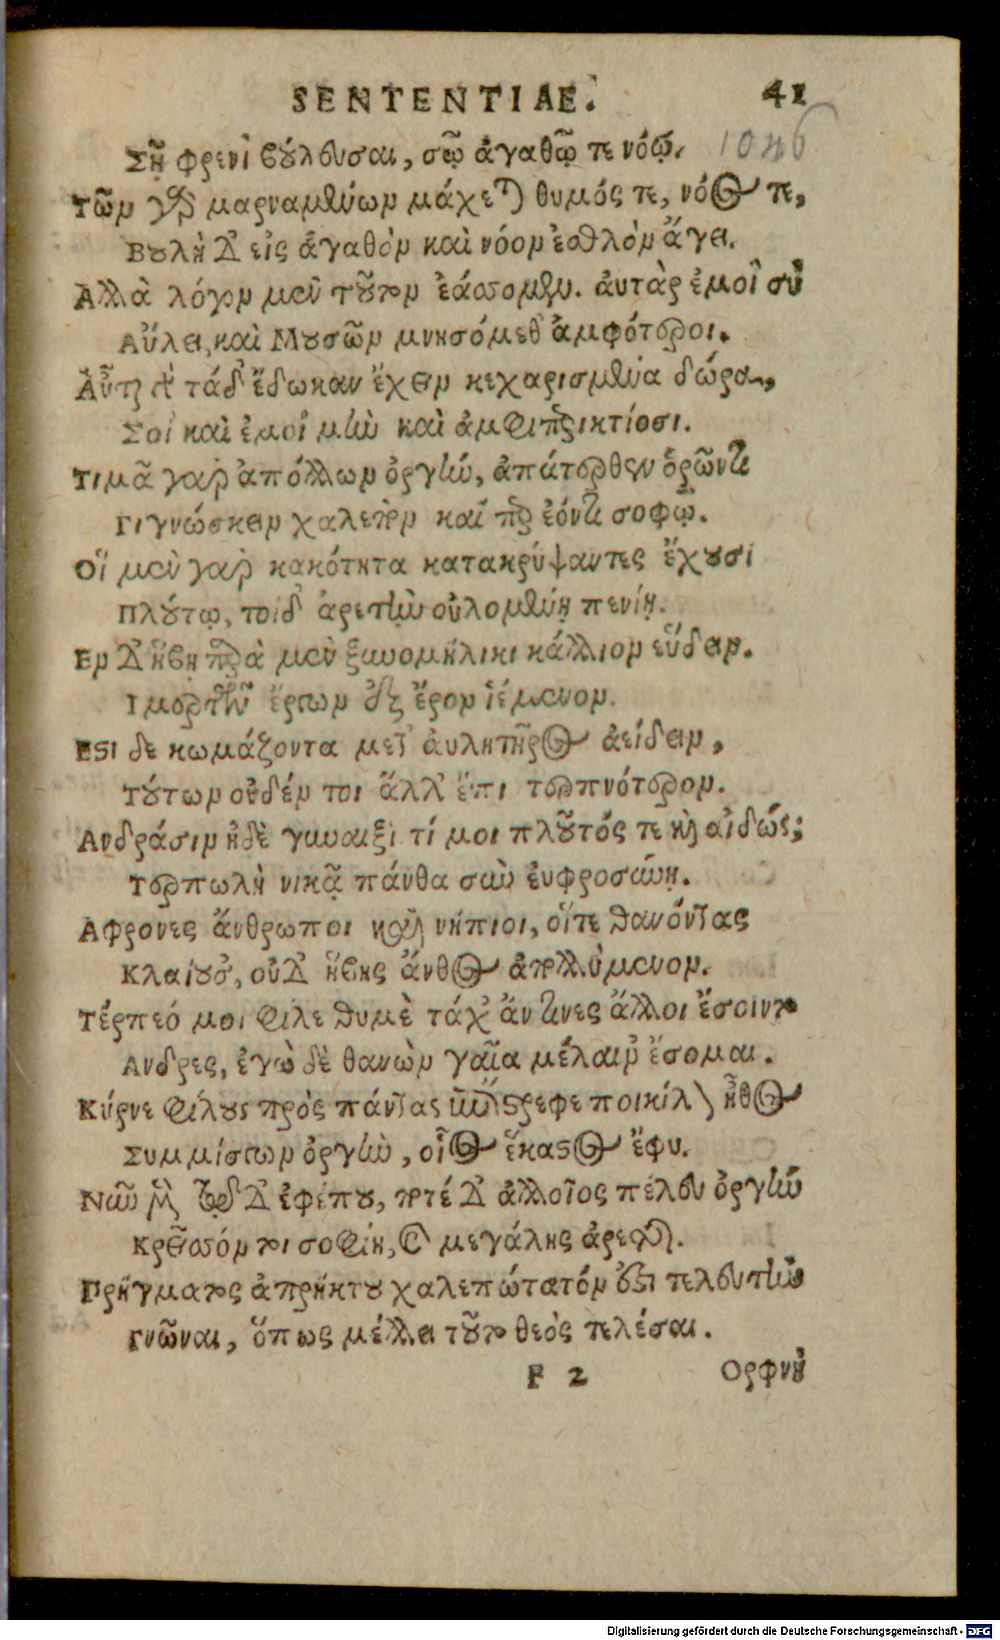 SENTENTIAE. 41
Σῇ φρενὶ βούλευσαι, σῷ ἀγαθῷ τε νόῳ. 1046
Τῶν γὰρ μαρναμένων μάχεται θυμός τε, νόος τε,
Βουλὴ δ' εἰς ἀγαθὸν καὶ νόον ἐσθλὸν ἄγει.
Ἀλλὰ λόγον μὲν τοῦτον ἐάσομεν. αὐτὰρ ἐμοὶ σὺ
Αὔλει, καὶ Μουσῶν μνησόμεθ' ἀμφότεροι.
Αὗται γὰρ τάδ' ἔδωκαν ἔχειν κεχαρισμένα δῶρα,
Σοὶ καὶ ἐμοὶ μὲν καὶ ἀμφιπερικτίοσι.
Τιμᾶ γὰρ ἀπόλλων ὀργήν, ἀπάτερθεν ὁρῶντι
Γιγνώσκειν χαλεπὸν καί περ ἐόντι σοφῷ.
Οἳ μὲν γὰρ κακότητα κατακρύψαντες ἔχουσι
Πλούτῳ, τοὶ δ' ἀρετὴν οὐλομένῃ πενίῃ.
Εν δ' ἥβῃ παρὰ μὲν ξυνομήλικι κάλλιον εὕδειν.
Ιμερτῶν ἔργων ἐξ ἔρον ἱέμενον.
Εστι δε κωμάζοντα μετ' αὐλητῆρος ἀείδειν,
Τούτων οὐδέν τοι ἄλλ' ἔπι τερπνότερον.
Ανδράσιν ἠδὲ γυναιξὶ τί μοι πλοῦτός τε καὶ αἰδώς;
Τερπωλὴ νικᾷ πάντα σὺν εὐφροσύνῃ.
Αφρονες ἄνθρωποι καὶ νήπιοι, οἵτε θανόντας
Κλαίουσ', οὐδ' ἥβης ἄνθος ἀπολλύμενον.
Τέρπεό μοι φίλε θυμὲ τάχ' ἄν τινες ἄλλοι ἔσοιντο
Ανδρες, ἐγὼ δὲ θανὼν γαῖα μέλαιν' ἔσομαι.
Κύρνε φίλους πρὸς πάντας ἐπίστρεφε ποικίλον ἦθος
Συμμίσγων ὀργὴν, οἷος ἕκαστος ἔφυ.
Νῦν μὲν τῷδ' ἐφέπου, τοτέ δ' ἀλλοῖος πέλευ ὀργὴν
Κρεῖσσόν τοι σοφίη, καὶ μεγάλης ἀρετῆς.
Πρήγματος ἀπρήκτου χαλεπώτατόν ἐστι τελευτὴν
Γνῶναι, ὅπως μέλλει τοῦτο θεὸς τελέσαι.
F 2 Ορφνὴ
Digitalisierung gefördert durch die Deutsche Forschungsgemeinschaft - DFG